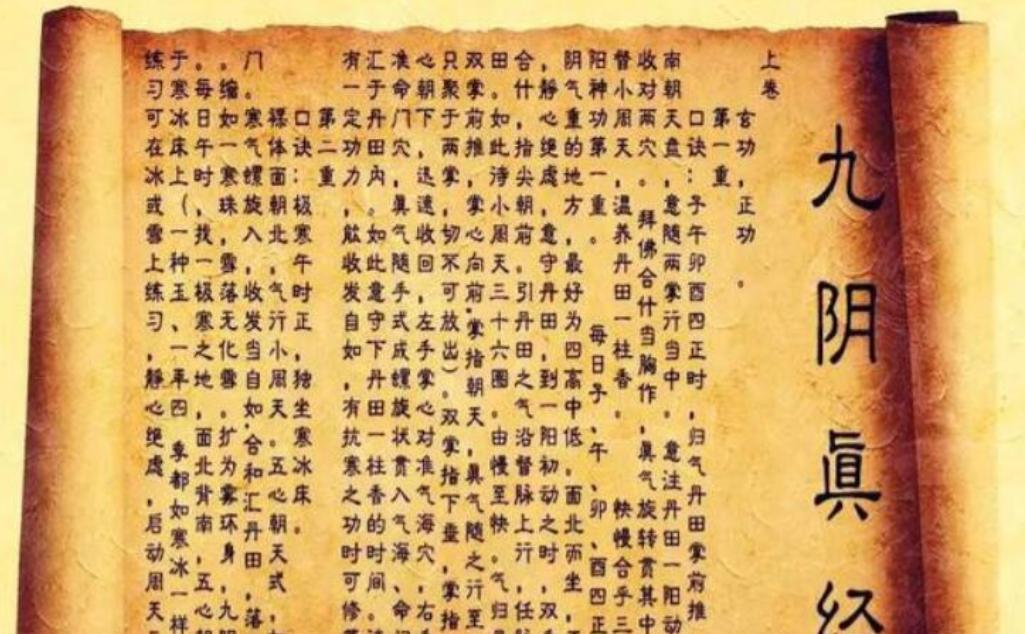 九阴眞经
上卷
玄功，正功。
第一重，
口诀：子午卯酉四正时，归气丹田掌前推
南朝天盘，意随两掌行当中。意注丹田一阳动
收对两穴。拜佛合什当胸作，眞气旋转贯其中
督小周天，温养丹田一柱香。快慢合乎三
阳神功第一重。每日子、午、卯、酉四正
阴气重的地方，最好为四高中低。面北而坐，
，静心绝虑，意守丹田，到一阳初动之时，双
合什，指尖朝前。引丹田之气沿督脉上行，任
田。如此待小周天三十六圈。由慢至快。气归
双掌前推，掌心向前，掌指朝天，眞气随之行至
只聚于两掌，切不可放出）。双掌指下垂，掌指
心朝下，迅速收回，左手掌心对准气海穴，右
准命门穴，眞气随手式成螺旋状贯入气海、命
汇于丹田内。如此意守下丹田一柱香的时间。
有一定功力，能收发自如，有抗寒之功时可修
第二重
口诀：极寒午时正，独坐寒冰床。
裸体面朝北，气行小周天。五心朝天式，
门寒气螺旋入，收发当自如，合和汇丹田，落
。缩如一寒珠，雪落无化雪。扩为雾环身，九
。每日午时，找一极寒之地，面北背南，五心
于寒冰床上（一种玉、一年四季都如寒冰一样
练习可在冰或雪上练习，静心绝虑，启动周天